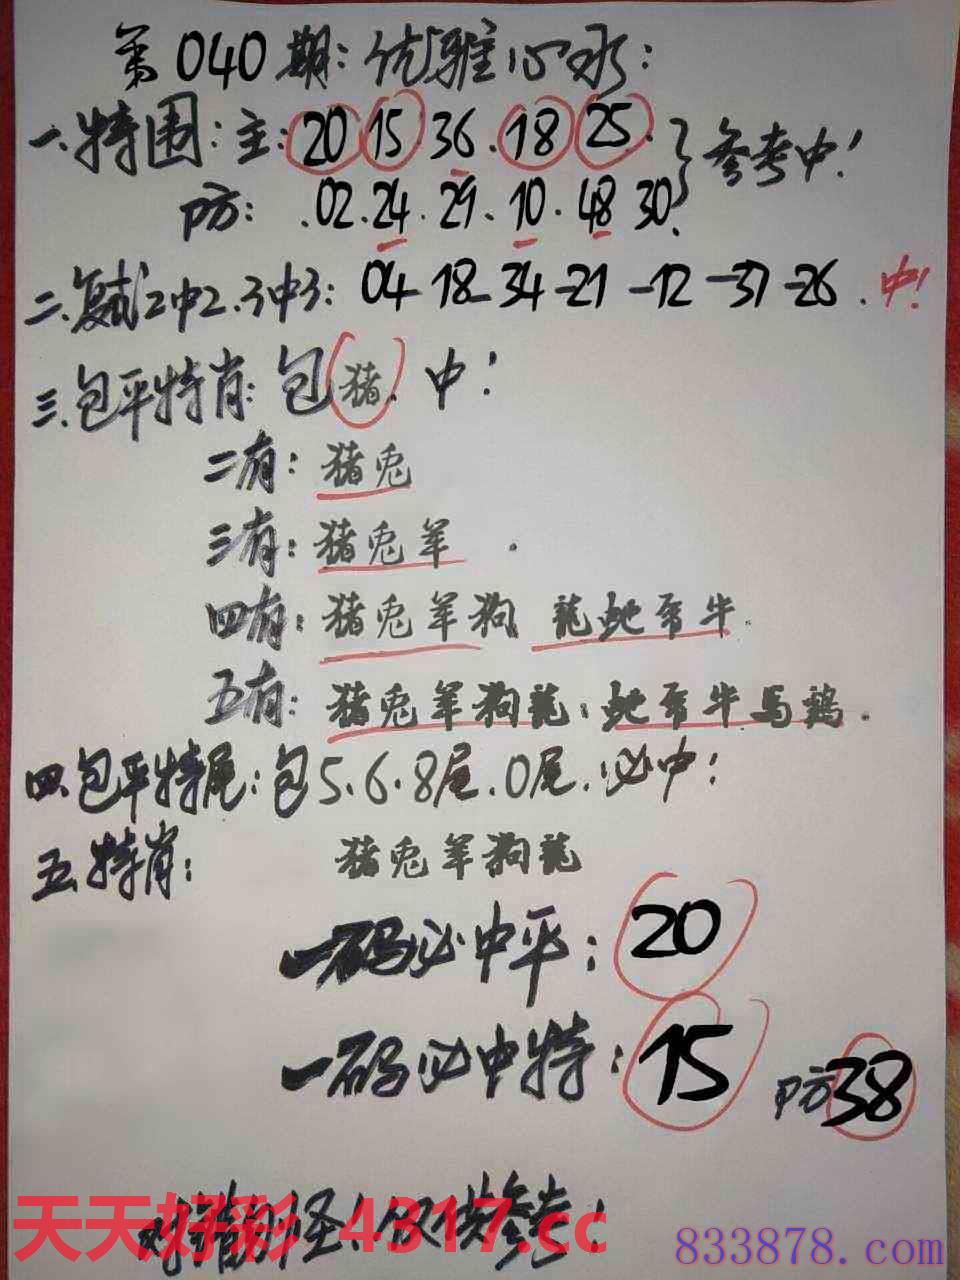 第040期:优雅心水:
一、特围:主:20 15 36.18 25. }参考中!
防:.02.24.29.10.48 30.
二、复试2中2.3中3: 04-18-34-21-12-37-26.中!
三、包平特肖:包猪.中!
二有:猪兔
三有:猪兔羊.
四有:猪兔羊狗 龍蛇牛.
五有:猪兔羊狗龍:蛇牛馬鷄.
四.包平特尾:包5.6.8尾.0尾.必中:
五特肖: 猪兔羊狗龍
一码必中平:20
一码必中特:15 防38
对错勿怪!仅供参考!
天天好彩 4317.cc
833878.com